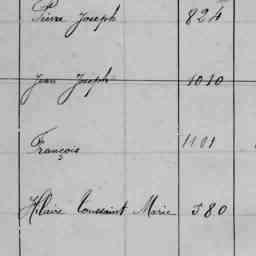 Pierre Joseph 824
Jean Joseph 1010
François 1101
Hilaire Toussaint Marie 580